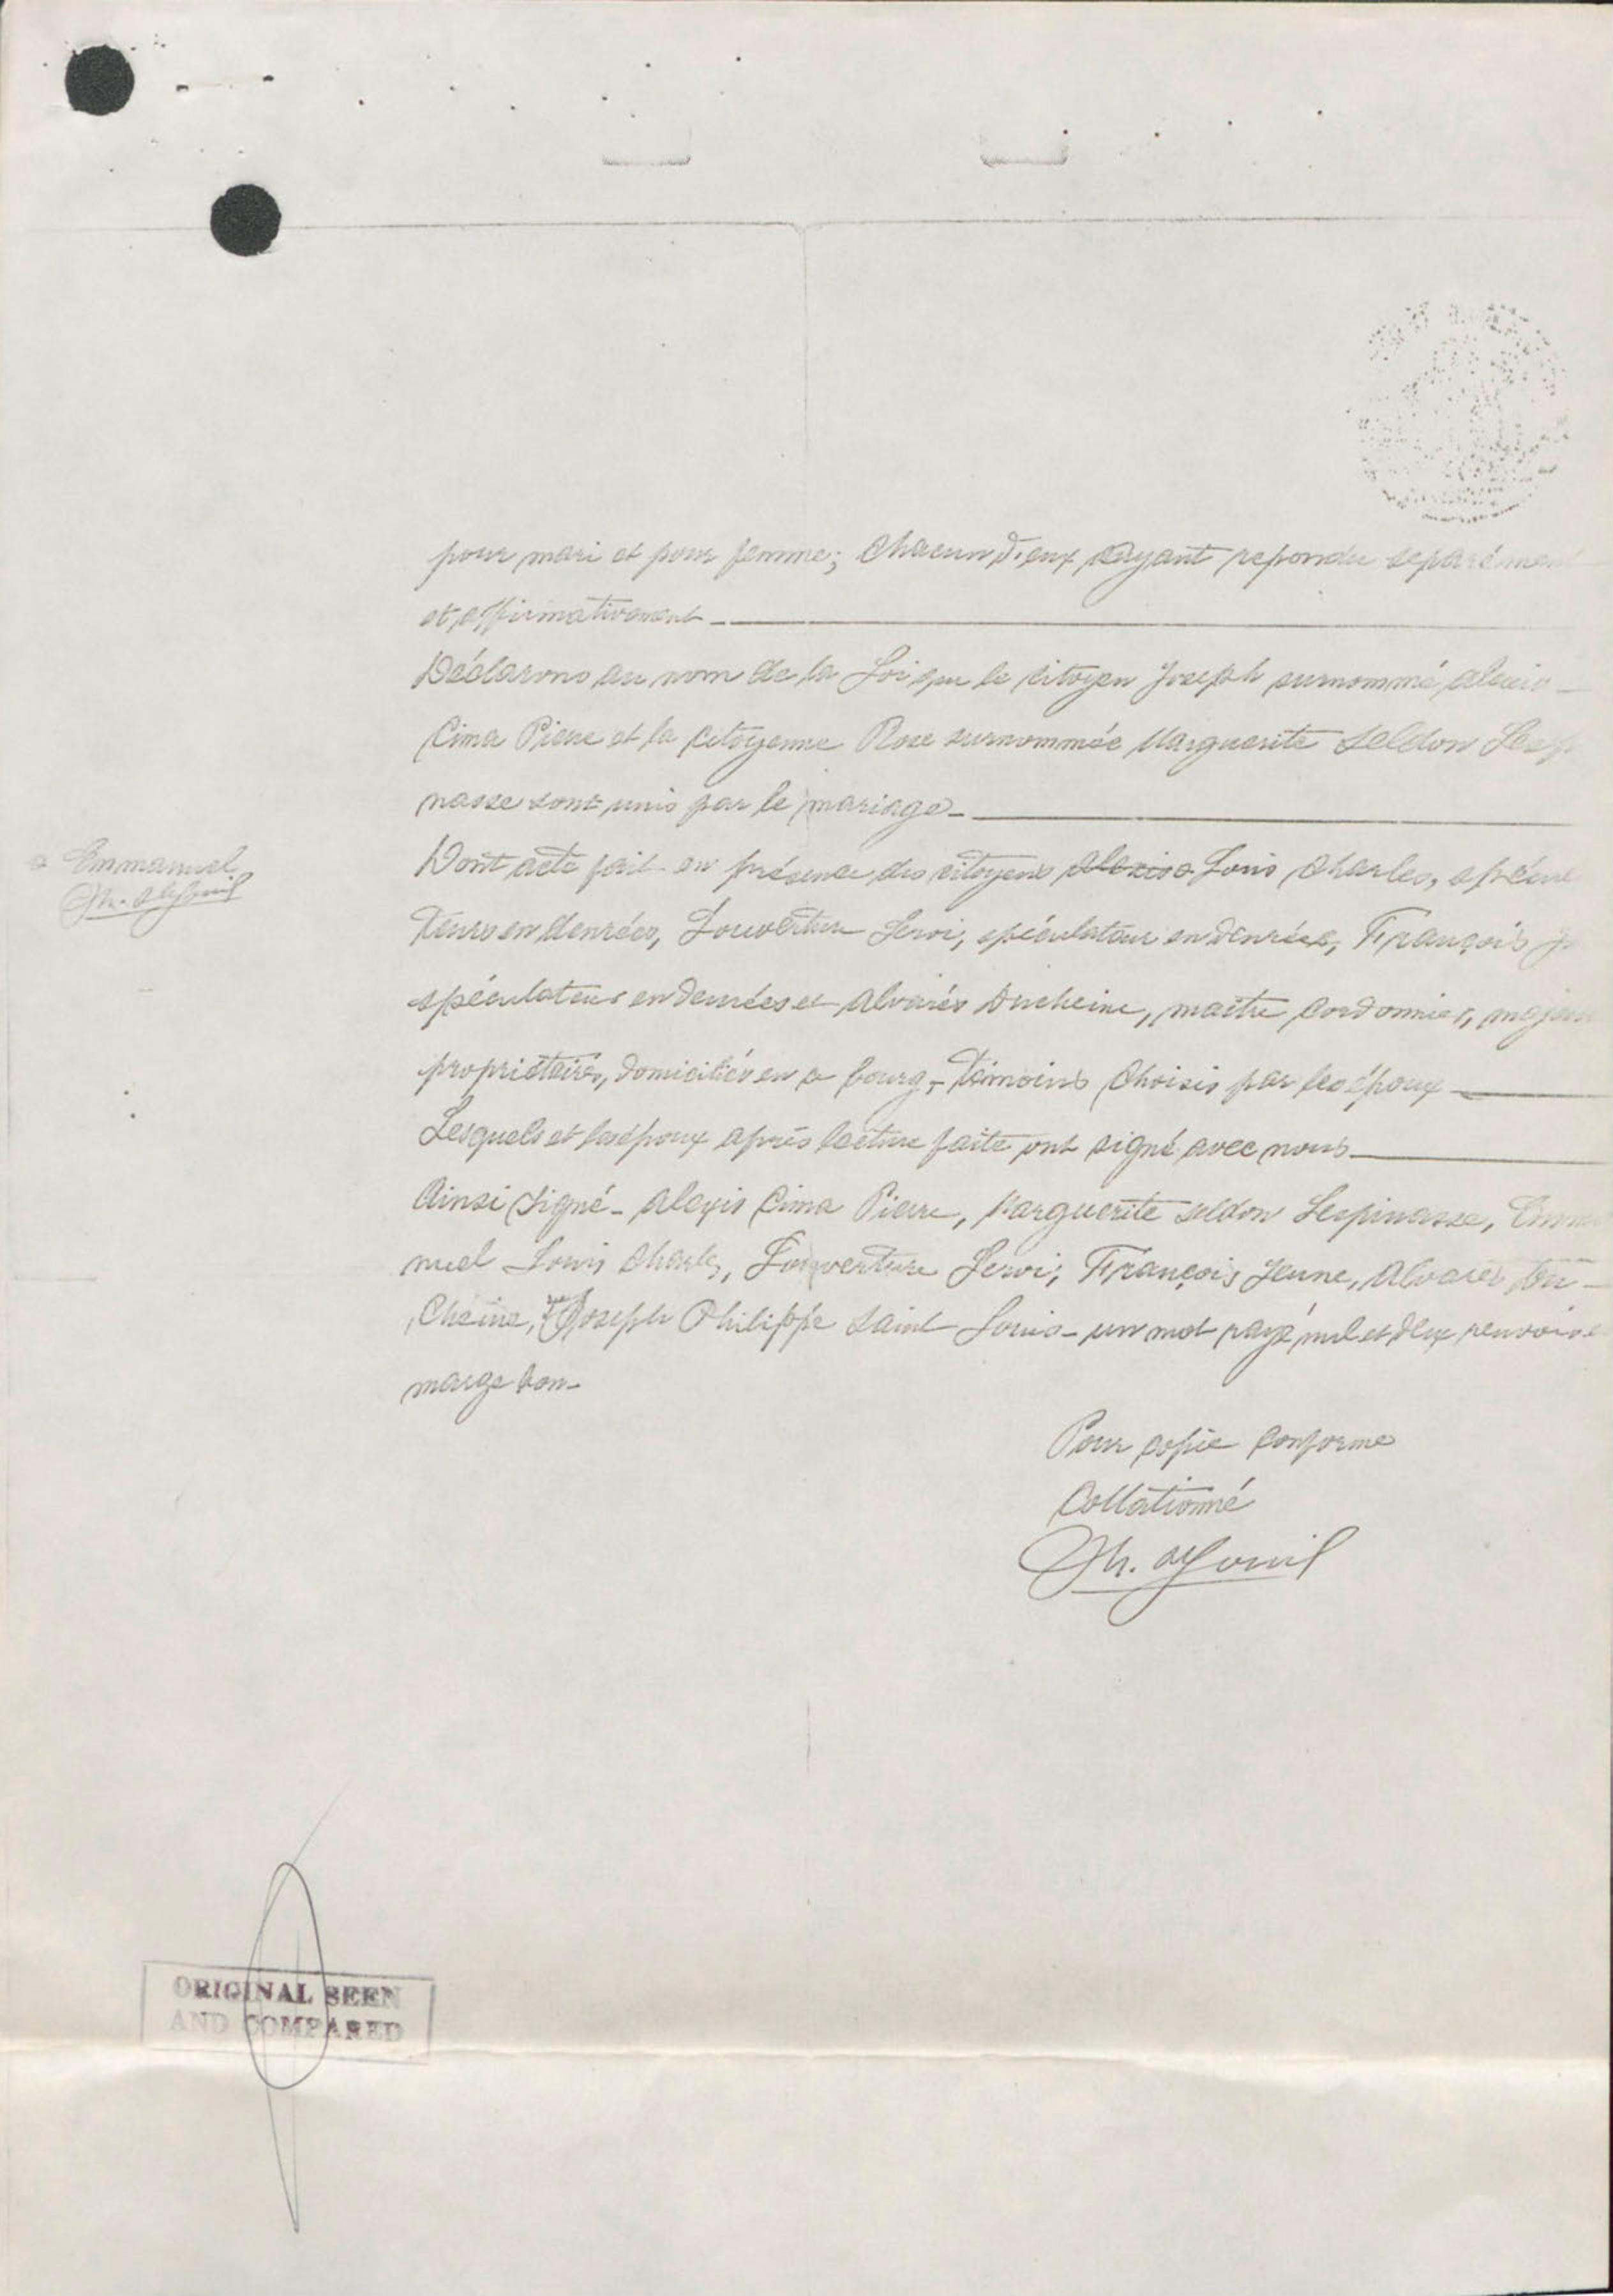 pour mari et pour femme; Chacun d'eux ayant repondu separémen
et affirmativement
Déclarons au nom de la Loi que le citoyen Joseph surnommé Alexis
Cima Pierre et la citoyenne Rose surnommée Marguerite Seldon Lespi
nasse sont unis par le mariage
Emmanuel
Dont acte fait en présence des citoyens Alexis Louis Charles, spécula
teurs en denrées, Louverture Leroi, spéculateur en denrées, François
spéculateur en denrées et Alvarès Ducheine, maître Cordonnier, majeurs
propriétaires, domiciliés en ce bourg, témoins choisis par les époux
Lesquels et les époux après lecture faite ont signé avec nous
Ainsi signé - Alexis Cima Pierre, Marguerite Seldon Lespinasse, Emma
nuel Louis Charles, Louverture Leroi, François Jeune, Alvares Du-
Cheine, Joseph Philippe Saint Louis - un mot rayé nul et deux renvois en
marge bon-
Pour copie conforme
Collationné
ORIGINAL SEEN
AND COMPARED